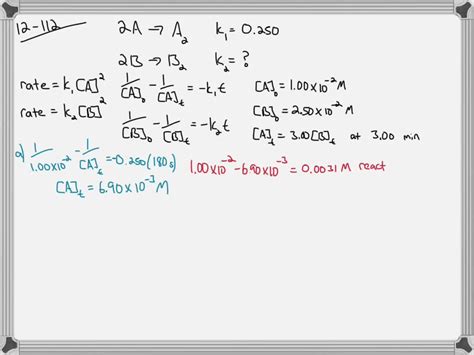 12-112 2A → A₂ k₁ = 0.250
2B → B₂ k₂ = ?
rate = k₁[A]² 1/[A]₀ - 1/[A]ₜ = -k₁t [A]₀ = 1.00×10⁻² M
rate = k₂[B]² 1/[B]₀ - 1/[B]ₜ = -k₂t [B]₀ = 2.50×10⁻² M
[A]ₜ = 3.00[B]ₜ at 3.00 min
a) 1/1.00×10⁻² - 1/[A]ₜ = -0.250(180s) 1.00×10⁻² - 6.90×10⁻³ = 0.0031 M react
[A]ₜ = 6.90×10⁻³ M